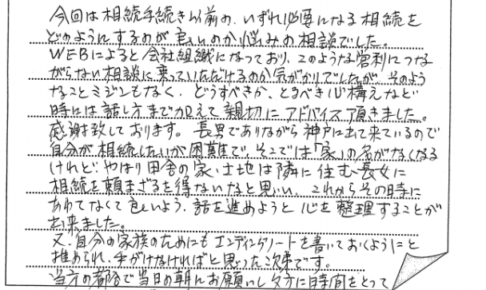 今回は相続手続き以前の、いずれ必要になる相続を
どのようにするのが良いのか悩みの相談でした。
WEBによると会社組織になっており、このような営利につな
がらない相談に乗っていただけるのか気がかりでしたが、そのよう
なことミジンもなく、どうすべきか、とるべき心構えなど
時には話し方まで加えて親切にアドバイス頂きました。
感謝致しております。長男でありながら神戸に出て来ているので
自分が相続したいが困難で、そこでは「家」の名がなくなる
けれど、やはり田舎の家・土地は隣に住む長女に
相続を頼まざるを得ないなと思い、これからその時に
あわてなくて良いよう、話を進めようと心を整理することが
出来ました。
又、自分の家族のためにもエンディングノートを書いておくようにと
推められ、手がけなければと思った次第です。
当方の都合で当日の朝にお願いし夕方に時間をとって